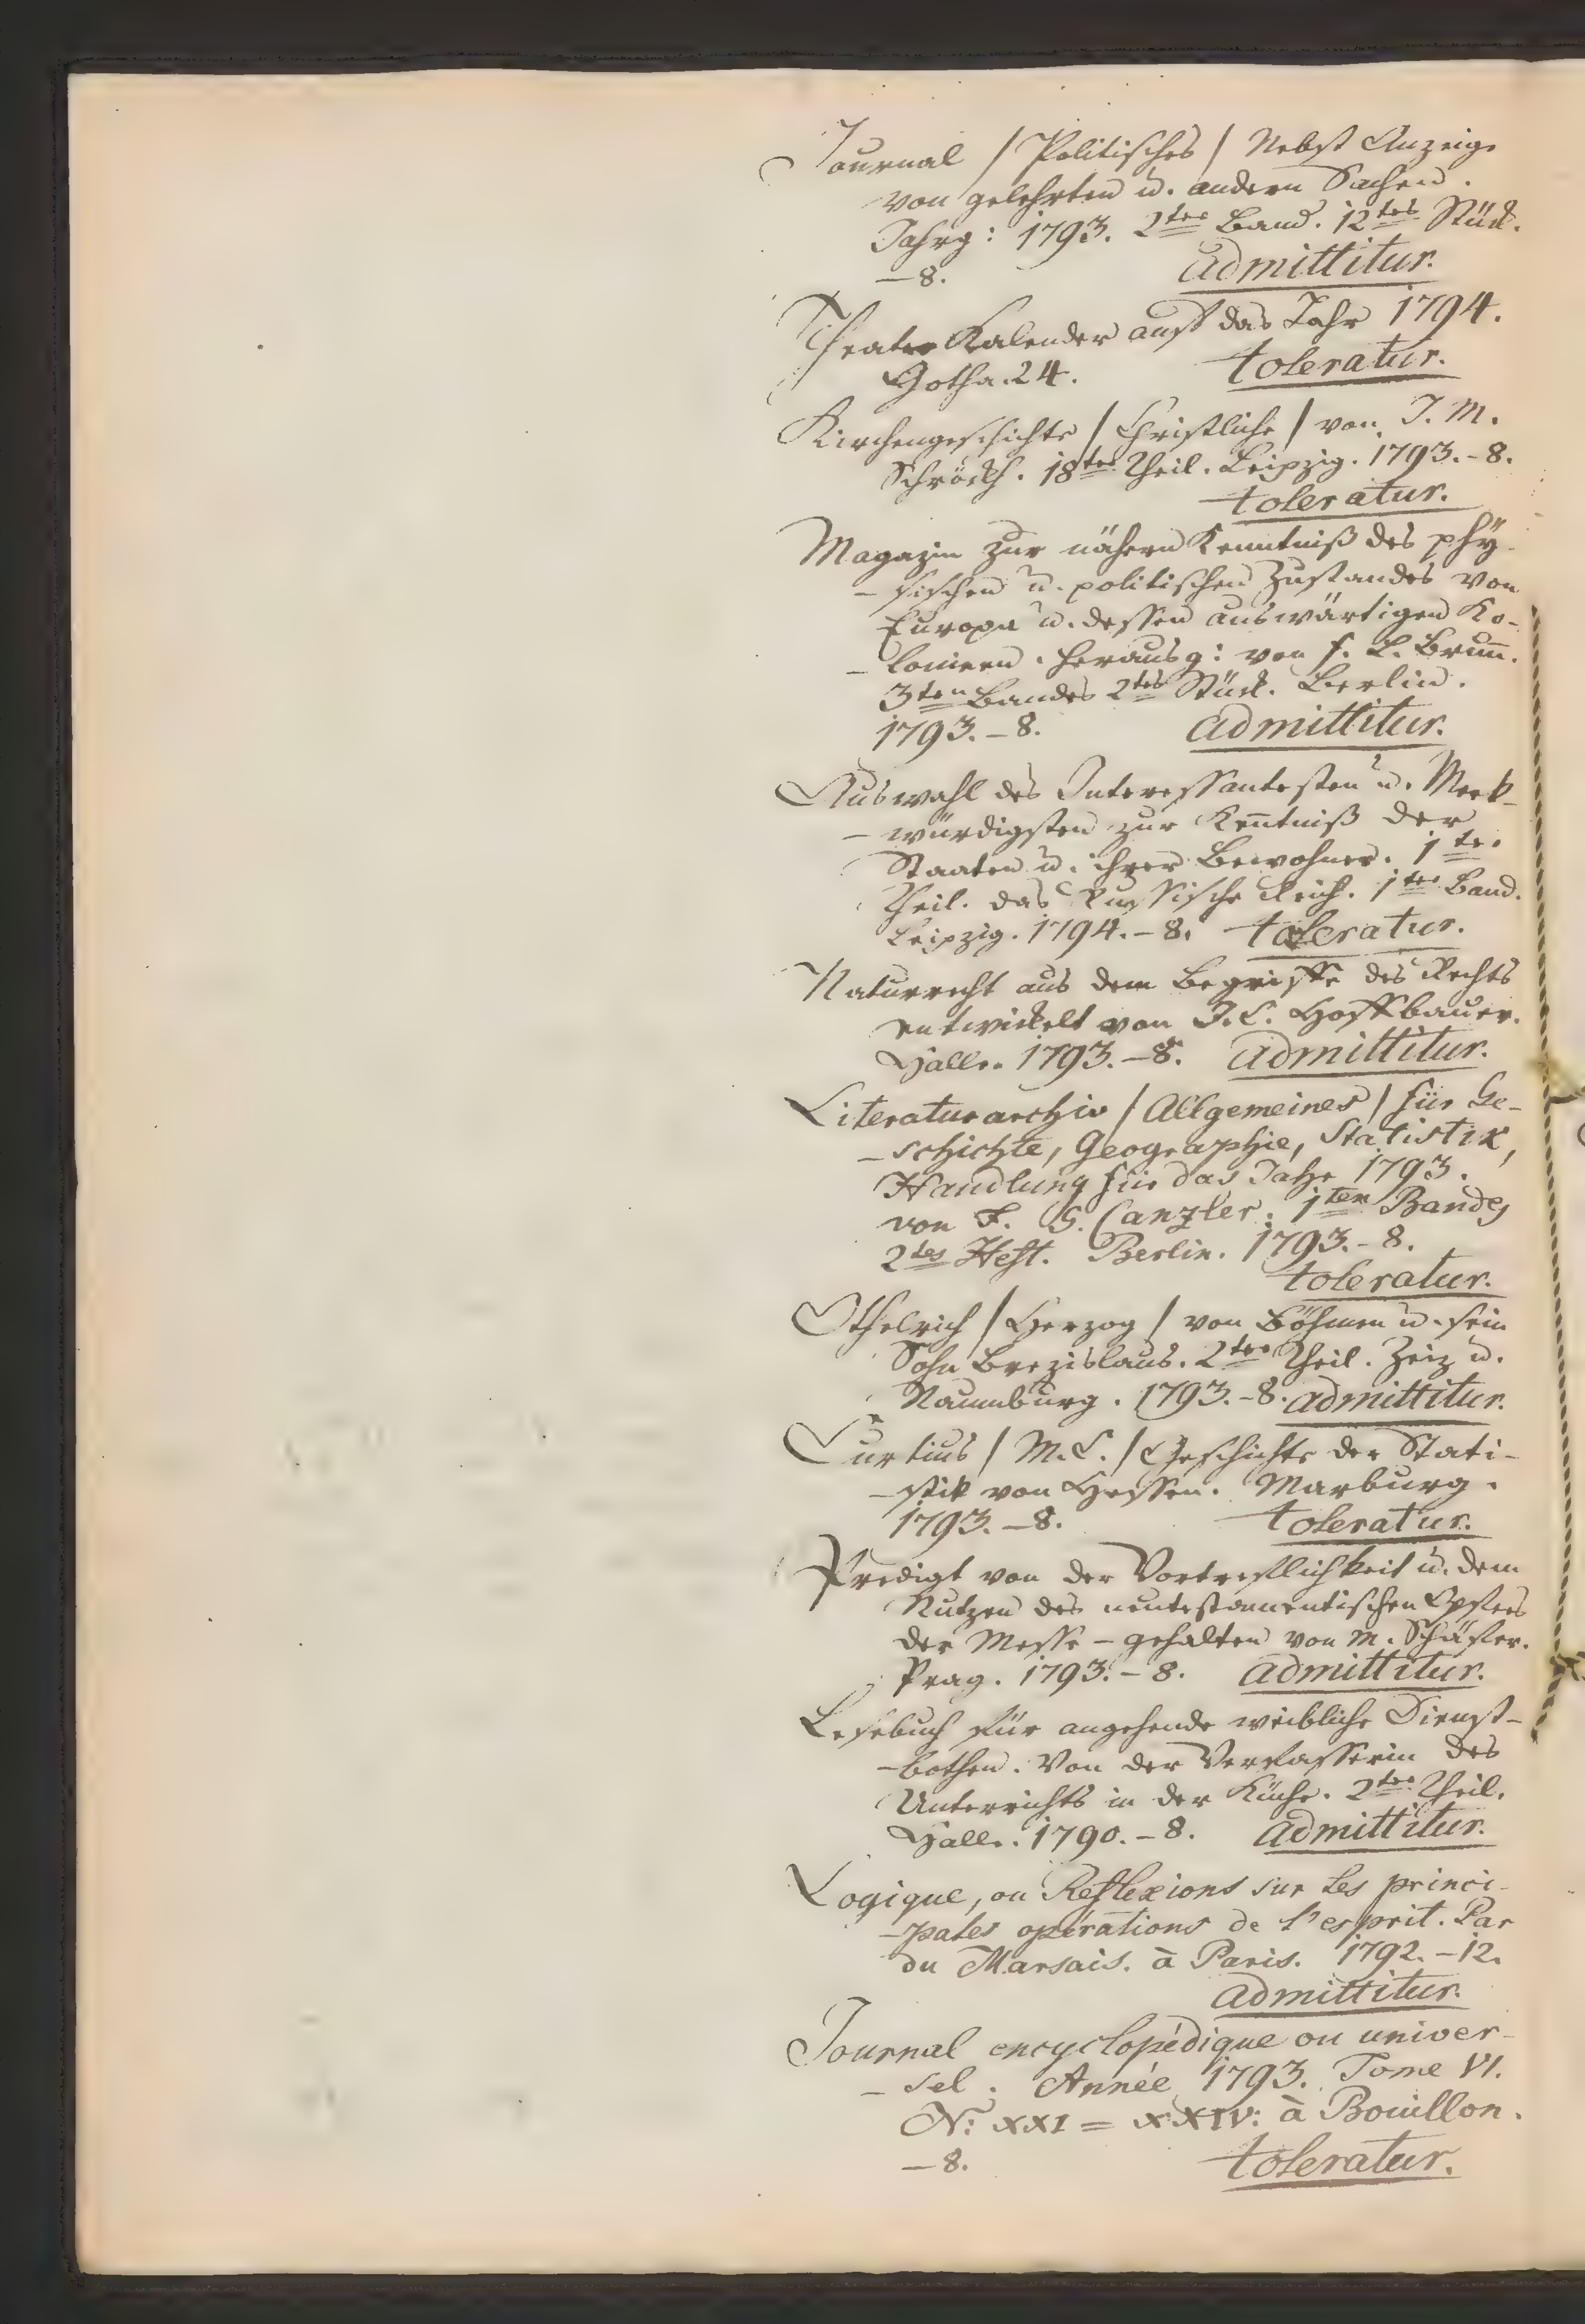 Journal / Politisches / Nebst Anzeige
von gelehrten u. andern Sachen.
Jahrg: 1793. 2ter Band. 12tes Stück.
—8. admittitur.
Theater Kalender auf das Jahr 1794.
Gotha. 24. toleratur.
Kirchengeschichte / Christliche / von J. M.
Schröckh. 18ter Theil. Leipzig. 1793.-8.
toleratur.
Magazin zur nähern Kenntniß des phy-
-sischen u. politischen Zustandes von
Europa u. dessen auswärtigen Ko-
-lonieen. herausg: von F. L. Brun̄.
3ten Bandes 2tes Stück. Berlin.
1793.-8. admittitur.
Auswahl des Interessantesten u. Merk-
-würdigsten zur Ken̄tniß der
Staaten u. ihrer Bewohner. 1ter
Theil. das Russische Reich. 1ter Band.
Leipzig. 1794.-8. toleratur.
Naturrecht aus dem Begriffe des Rechts
entwickelt von J. C. Hoffbauer.
Halle. 1793.-8. admittitur.
Literaturarchiv / Allgemeines / für Ge-
-schichte, Geographie, Statistik,
Handlung für das Jahr 1793.
von F. G. Canzler. 1ten Bandes
2tes Heft. Berlin. 1793.-8.
toleratur.
Othelrich / Herzog / von Böhmen u. sein
Sohn Brezislaus. 2ter Theil. Zeiz u.
Naumburg. 1793.-8. admittitur.
Curtius / M. C. / Geschichte der Stati-
-stik von Hessen. Marburg.
1793.-8. toleratur.
Predigt von der Vortreflichkeit u. dem
Nutzen des neutestamentischen Opfers
der Messe - gehalten von M. Schäfer.
Prag. 1793.-8. admittitur.
Lesebuch für angehende weibliche Dienst-
-bothen. Von der Verfasserin des
Unterrichts in der Küche. 2ter Theil.
Halle. 1790.-8. admittitur.
Logique, ou Reflexions sur les princi-
-pales opérations de l'esprit. Par
du Marsais. à Paris. 1792.-12.
admittitur.
Journal encyclopédique ou univer-
-sel. Année 1793. Tome VI.
N: XXI = XXIV: à Bouillon.
—8. toleratur.